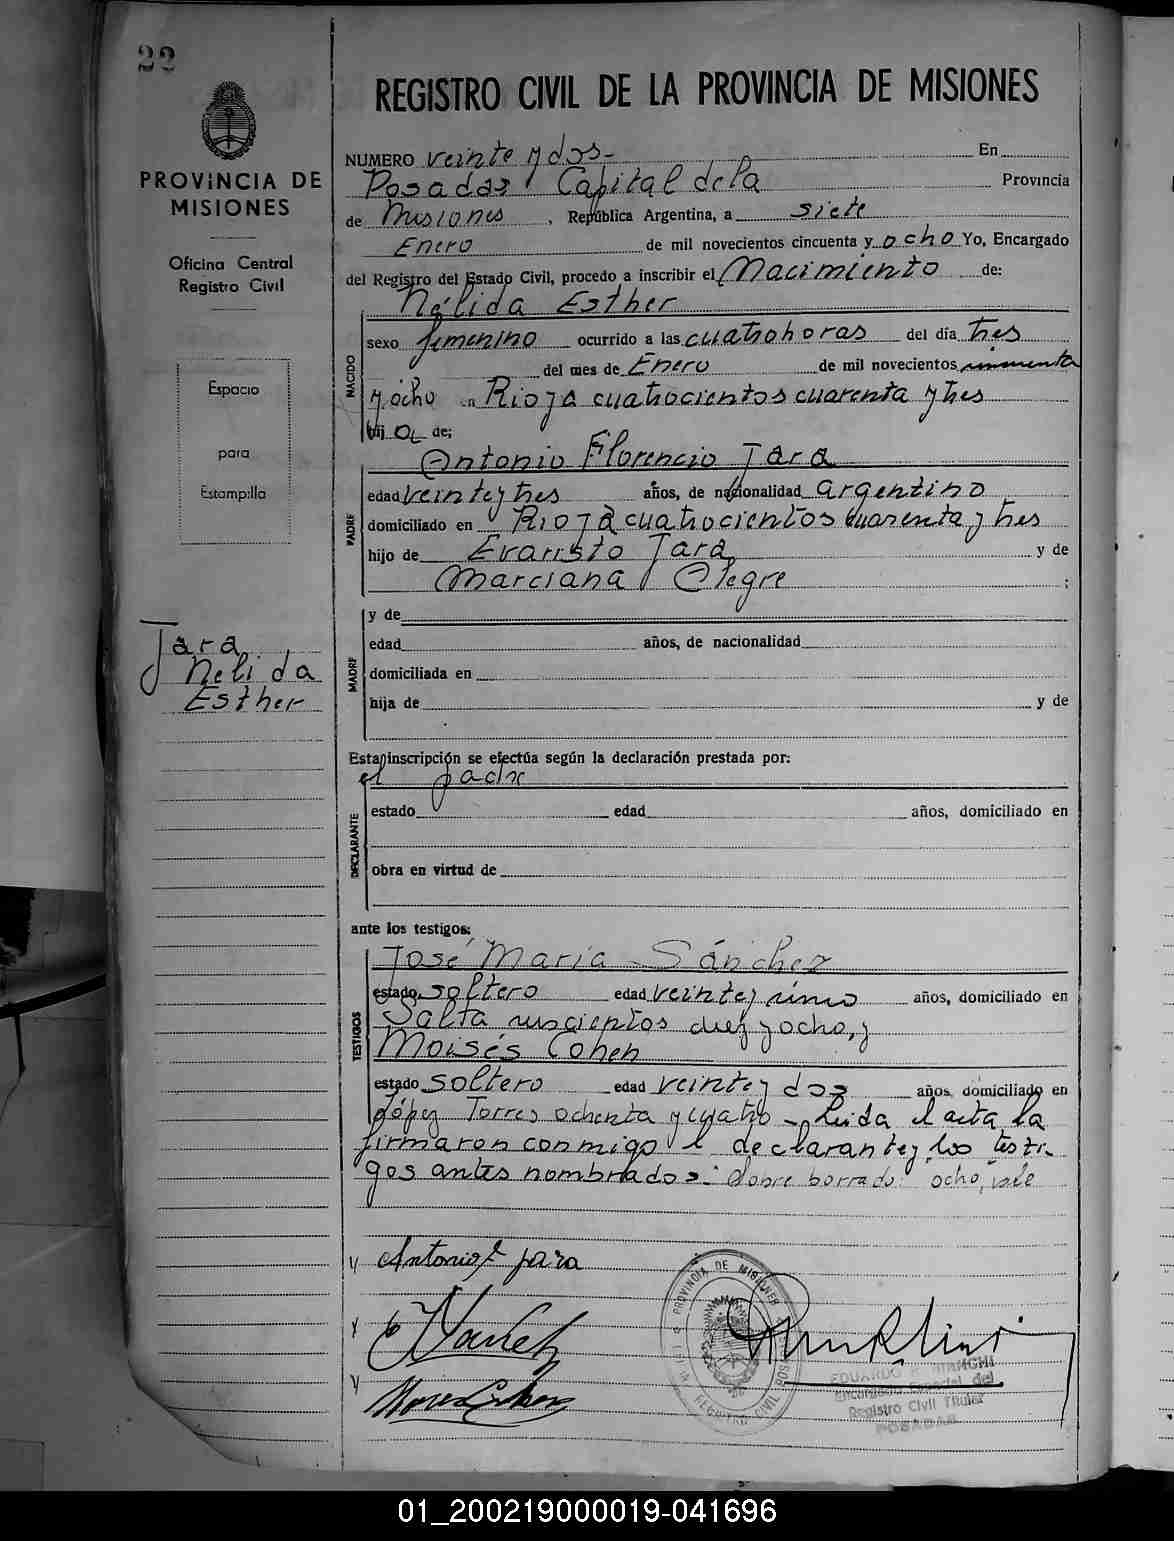 22
REGISTRO CIVIL DE LA PROVINCIA DE MISIONES
PROVINCIA DE
MISIONES
Oficina Central
Registro Civil
Espacio
para
Estampilla
Jara
Nelida
Esther
NUMERO veinte y dos- En
Posadas Capital de la Provincia
de Misiones, República Argentina, a siete
Enero de mil novecientos cincuenta y ocho Yo, Encargado
del Registro del Estado Civil, procedo a inscribir el Nacimiento de:
Nélida Esther
NACIDO
sexo femenino ocurrido a las cuatro horas del día tres
del mes de Enero de mil novecientos cincuenta
y ocho en Rioja cuatrocientos cuarenta y tres
hij a de:
Antonio Florencio Jara
PADRE
edad veinte y tres años, de nacionalidad argentino
domiciliado en Rioja cuatrocientos cuarenta y tres
hijo de Evaristo Jara y de
Marciana Alegre ;
MADRE
y de
edad años, de nacionalidad
domiciliada en
hija de y de
Esta inscripción se efectúa según la declaración prestada por:
el padre
DECLARANTE
estado edad años, domiciliado en
obra en virtud de
ante los testigos:
TESTIGOS
José Maria Sánchez
estado soltero edad veinte y años, domiciliado en
Salta diez y ocho, y
Moisés Cohen
estado soltero edad veinte y dos años, domiciliado en
López Torres ochenta y cuatro - Leida el acta, la
firmaron conmigo el declarante y los testi-
gos antes nombrados.- Sobre borrado: ocho, vale
Antonio F Jara
PROVINCIA DE MISIONES
REGISTRO CIVIL
EDUARDO BIANCHI
Encargado Especial del
Registro Civil Titular
POSADAS
01_200219000019-041696